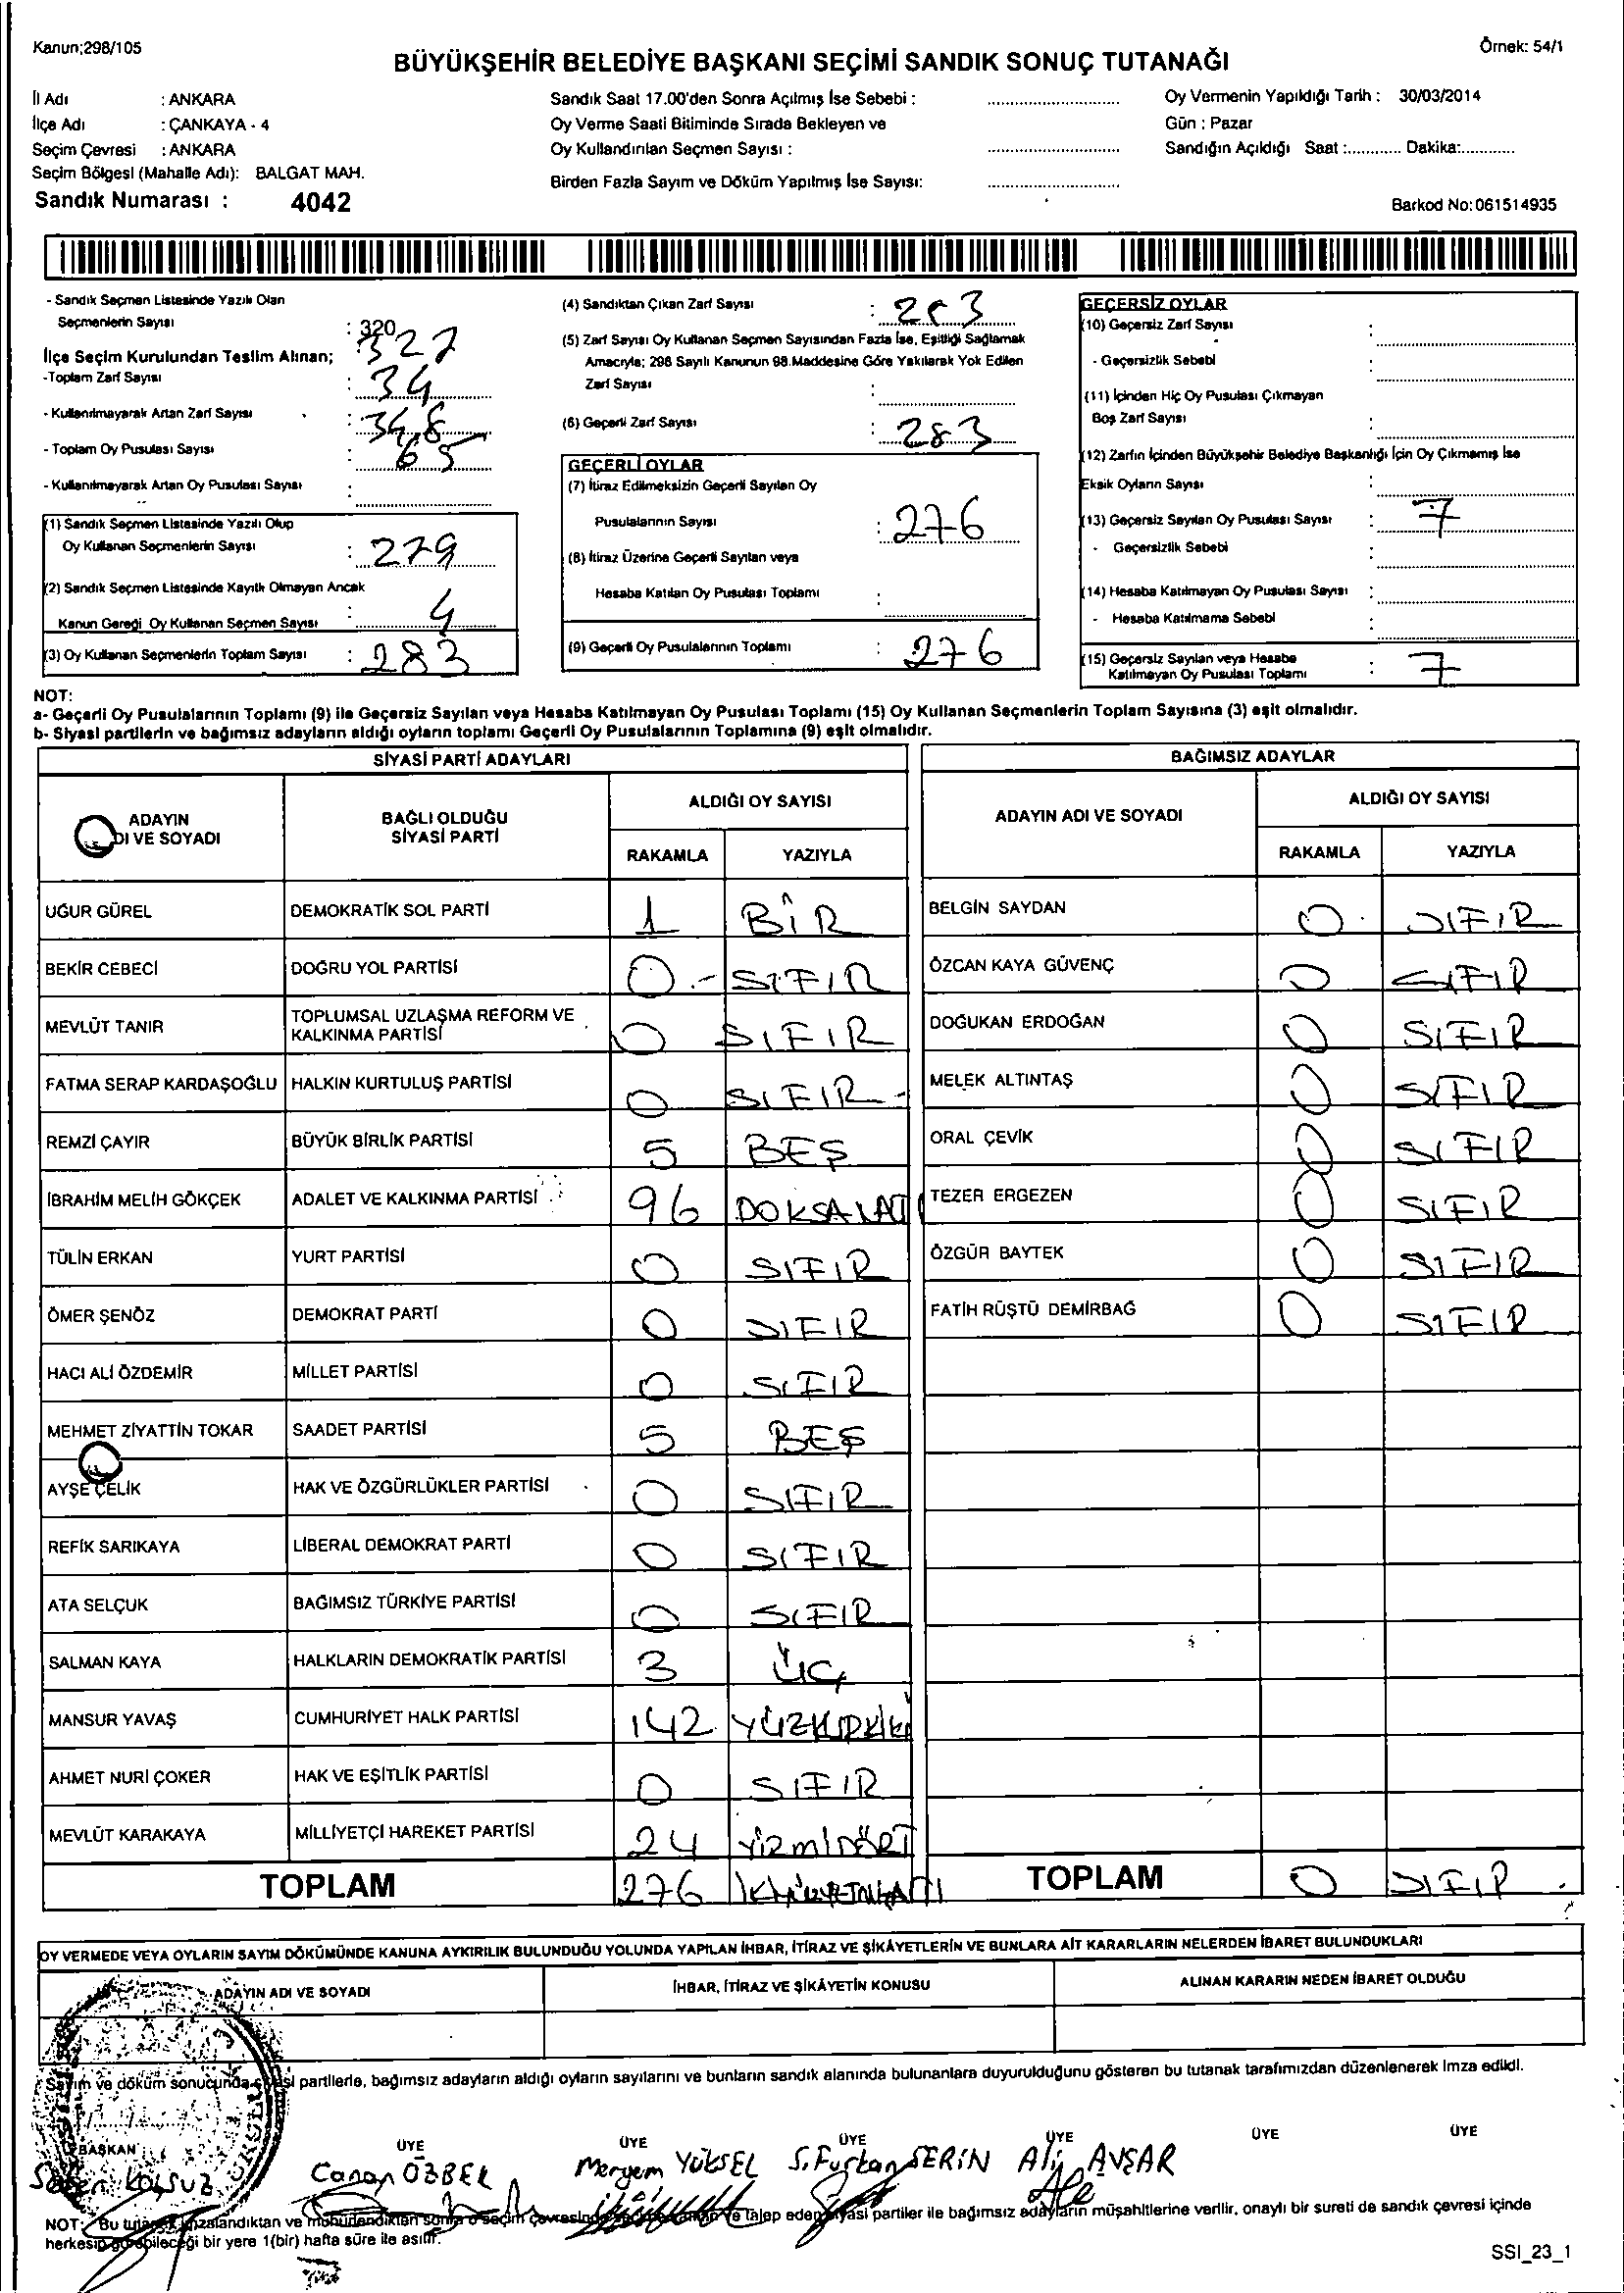 Kanun;298/105
Örnek: 54/1
BÜYÜKŞEHİR BELEDİYE BAŞKANI SEÇİMİ SANDIK SONUÇ TUTANAĞI
İl Adı : ANKARA
İlçe Adı : ÇANKAYA - 4
Seçim Çevresi : ANKARA
Seçim Bölgesi (Mahalle Adı): BALGAT MAH.
Sandık Numarası : 4042
Sandık Saat 17.00'den Sonra Açılmış İse Sebebi :
Oy Verme Saati Bitiminde Sırada Bekleyen ve
Oy Kullandırılan Seçmen Sayısı :
Birden Fazla Sayım ve Döküm Yapılmış İse Sayısı:
Oy Vermenin Yapıldığı Tarih : 30/03/2014
Gün : Pazar
Sandığın Açıldığı Saat :............ Dakika:............
Barkod No:061514935
- Sandık Seçmen Listesinde Yazılı Olan
Seçmenlerin Sayısı : 320
322
İlçe Seçim Kurulundan Teslim Alınan;
-Toplam Zarf Sayısı : 34
- Kullanılmayarak Artan Zarf Sayısı : 348
- Toplam Oy Pusulası Sayısı : 65
- Kullanılmayarak Artan Oy Pusulası Sayısı :
(1) Sandık Seçmen Listesinde Yazılı Olup
Oy Kullanan Seçmenlerin Sayısı : 279
(2) Sandık Seçmen Listesinde Kayıtlı Olmayan Ancak
Kanun Gereği Oy Kullanan Seçmen Sayısı : 4
(3) Oy Kullanan Seçmenlerin Toplam Sayısı : 283
(4) Sandıktan Çıkan Zarf Sayısı : 283
(5) Zarf Sayısı Oy Kullanan Seçmen Sayısından Fazla İse, Eşitliği Sağlamak
Amacıyla; 298 Sayılı Kanunun 98.Maddesine Göre Yakılarak Yok Edilen
Zarf Sayısı :
(6) Geçerli Zarf Sayısı : 283
GEÇERLİ OYLAR
(7) İtiraz Edilmeksizin Geçerli Sayılan Oy
Pusulalarının Sayısı : 276
(8) İtiraz Üzerine Geçerli Sayılan veya
Hesaba Katılan Oy Pusulası Toplamı :
(9) Geçerli Oy Pusulalarının Toplamı : 276
GEÇERSİZ OYLAR
(10) Geçersiz Zarf Sayısı :
- Geçersizlik Sebebi :
(11) İçinden Hiç Oy Pusulası Çıkmayan
Boş Zarf Sayısı :
(12) Zarfın İçinden Büyükşehir Belediye Başkanlığı İçin Oy Çıkmamış İse
Eksik Oyların Sayısı :
(13) Geçersiz Sayılan Oy Pusulası Sayısı : 7
- Geçersizlik Sebebi :
(14) Hesaba Katılmayan Oy Pusulası Sayısı :
- Hesaba Katılmama Sebebi :
(15) Geçersiz Sayılan veya Hesaba
Katılmayan Oy Pusulası Toplamı : 7
NOT:
a- Geçerli Oy Pusulalarının Toplamı (9) ile Geçersiz Sayılan veya Hesaba Katılmayan Oy Pusulası Toplamı (15) Oy Kullanan Seçmenlerin Toplam Sayısına (3) eşit olmalıdır.
b- Siyasi partilerin ve bağımsız adayların aldığı oyların toplamı Geçerli Oy Pusulalarının Toplamına (9) eşit olmalıdır.
SİYASİ PARTİ ADAYLARI
ADAYIN
DI VE SOYADI
BAĞLI OLDUĞU
SİYASİ PARTİ
ALDIĞI OY SAYISI
RAKAMLA YAZIYLA
UĞUR GÜREL DEMOKRATİK SOL PARTİ 1 BİR
BEKİR CEBECİ DOĞRU YOL PARTİSİ 0 - SIFIR
MEVLÜT TANIR TOPLUMSAL UZLAŞMA REFORM VE
KALKINMA PARTİSİ 0 SIFIR
FATMA SERAP KARDAŞOĞLU HALKIN KURTULUŞ PARTİSİ 0 SIFIR -
REMZİ ÇAYIR BÜYÜK BİRLİK PARTİSİ 5 BEŞ
İBRAHİM MELİH GÖKÇEK ADALET VE KALKINMA PARTİSİ 96 DOKSANALTI
TÜLİN ERKAN YURT PARTİSİ 0 SIFIR
ÖMER ŞENÖZ DEMOKRAT PARTİ 0 SIFIR
HACI ALİ ÖZDEMİR MİLLET PARTİSİ 0 SIFIR
MEHMET ZİYATTİN TOKAR SAADET PARTİSİ 5 BEŞ
AYŞE ÇELİK HAK VE ÖZGÜRLÜKLER PARTİSİ 0 SIFIR
REFİK SARIKAYA LİBERAL DEMOKRAT PARTİ 0 SIFIR
ATA SELÇUK BAĞIMSIZ TÜRKİYE PARTİSİ 0 SIFIR
SALMAN KAYA HALKLARIN DEMOKRATİK PARTİSİ 3 ÜÇ
MANSUR YAVAŞ CUMHURİYET HALK PARTİSİ 142 YÜZKIRKİKİ
AHMET NURİ ÇOKER HAK VE EŞİTLİK PARTİSİ 0 SIFIR
MEVLÜT KARAKAYA MİLLİYETÇİ HAREKET PARTİSİ 24 YİRMİDÖRT
TOPLAM 276
BAĞIMSIZ ADAYLAR
ADAYIN ADI VE SOYADI
ALDIĞI OY SAYISI
RAKAMLA YAZIYLA
BELGİN SAYDAN 0 SIFIR
ÖZCAN KAYA GÜVENÇ 0 SIFIR
DOĞUKAN ERDOĞAN 0 SIFIR
MELEK ALTINTAŞ 0 SIFIR
ORAL ÇEVİK 0 SIFIR
TEZER ERGEZEN 0 SIFIR
ÖZGÜR BAYTEK 0 SIFIR
FATİH RÜŞTÜ DEMİRBAĞ 0 SIFIR
TOPLAM 0 SIFIR
OY VERMEDE VEYA OYLARIN SAYIM DÖKÜMÜNDE KANUNA AYKIRILIK BULUNDUĞU YOLUNDA YAPILAN İHBAR, İTİRAZ VE ŞİKÂYETLERİN VE BUNLARA AİT KARARLARIN NELERDEN İBARET BULUNDUKLARI
ADAYIN ADI VE SOYADI İHBAR, İTİRAZ VE ŞİKÂYETİN KONUSU ALINAN KARARIN NEDEN İBARET OLDUĞU
Sayım ve döküm sonucunda siyasi partilerle, bağımsız adayların aldığı oyların sayılarını ve bunların sandık alanında bulunanlara duyurulduğunu gösteren bu tutanak tarafımızdan düzenlenerek imza edildi.
BAŞKAN ÜYE ÜYE ÜYE ÜYE ÜYE ÜYE
Canan ÖZBEK Meryem YÜKSEL S.Furkan SERİN Ali AVŞAR
NOT: Bu tutanak imzalandıktan ve mühürlendikten sonra o seçim çevresinde talep eden siyasi partiler ile bağımsız adayların müşahitlerine verilir, onaylı bir sureti de sandık çevresi içinde
herkesin görebileceği bir yere 1(bir) hafta süre ile asılır.
SSI_23_1